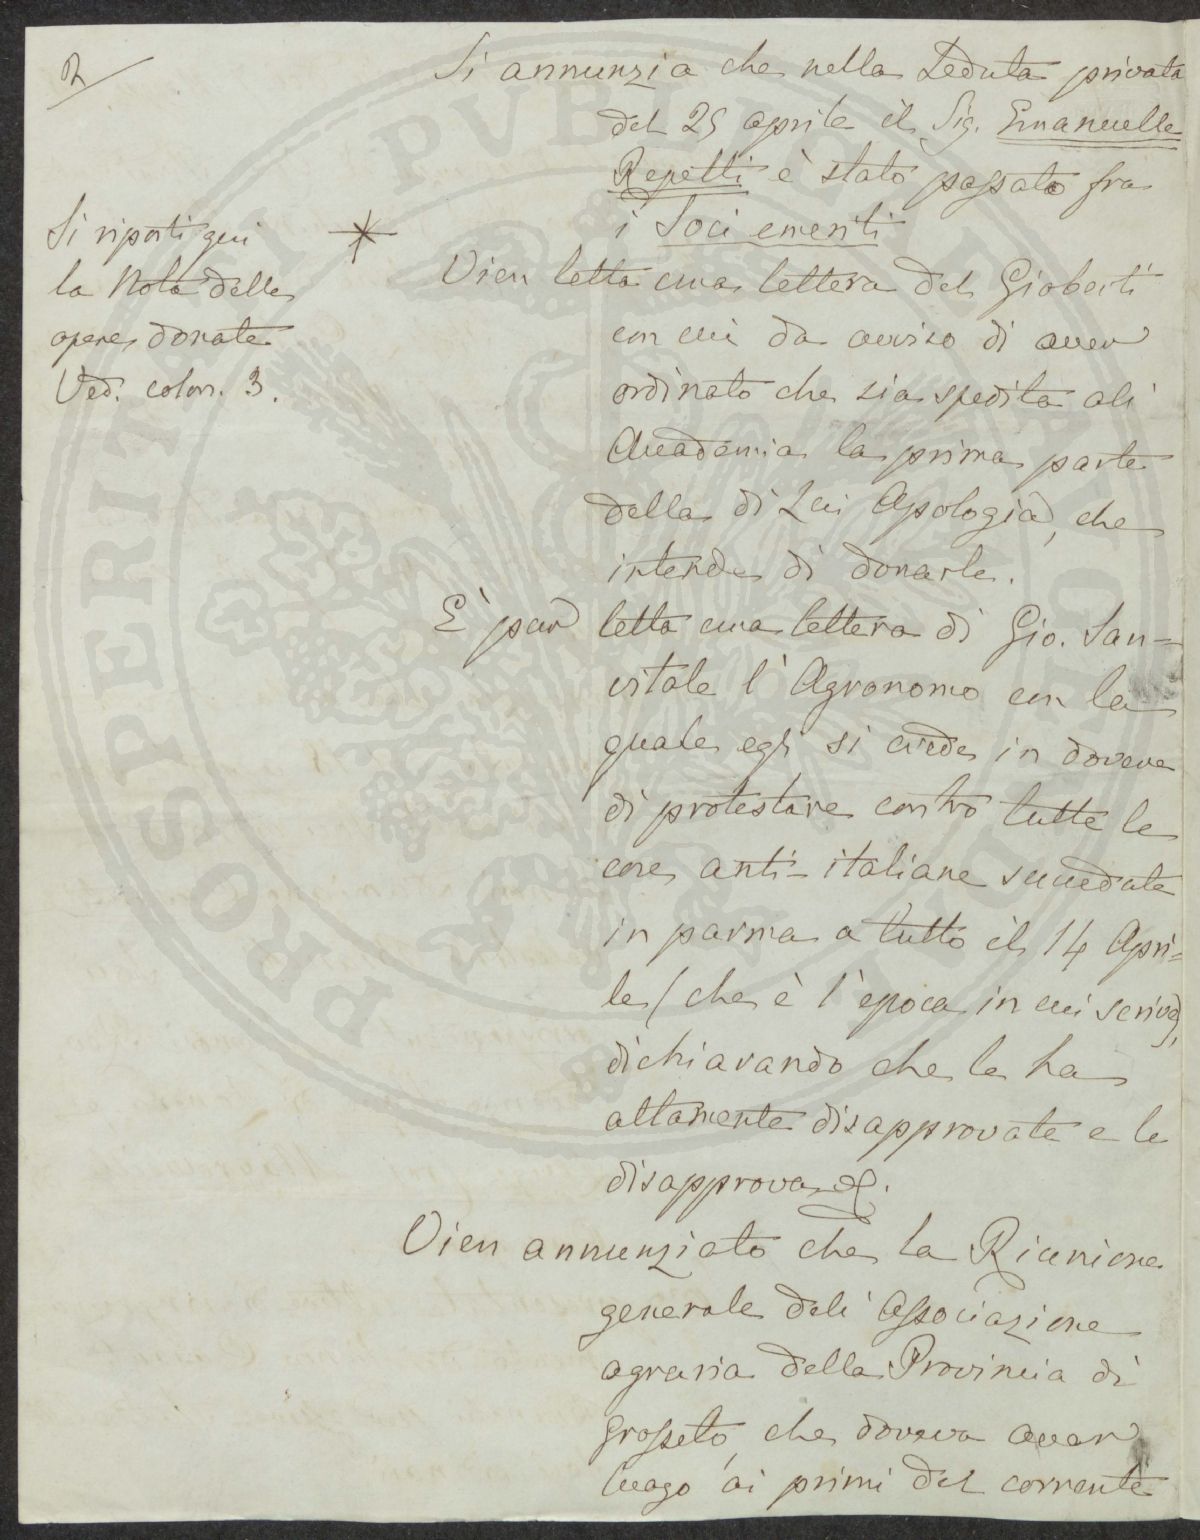 2
Si annunzia che nella Seduta privata
del 25 aprile il Sig. Emanuelle
Repetti è stato passato fra
i Soci emeriti
Si riporti qui
la Nota delle
opere donate
Ved. colon. 3.
Vien letta una lettera del Gioberti
con cui da avviso di aver
ordinato che sia spedita all'
Accademia la prima parte
della di Lui Apologia, che
intende di donarle.
E' pur letta una lettera di Gio. San=
vitale l'Agronomo con la
quale egli si crede in dovere
di protestare contro tutte le
cose anti-italiane succedute
in parma a tutto il 14 Apri=
le (che è l'epoca in cui scrive),
dichiarando che le ha
altamente disapprovate e le
disapprova &.
Vien annunziato che la Riunione
generale dell'Associazione
agraria della Provincia di
Grosseto, che doveva aver
luogo ai primi del corrente
PROSPERITATI PVBLICAE